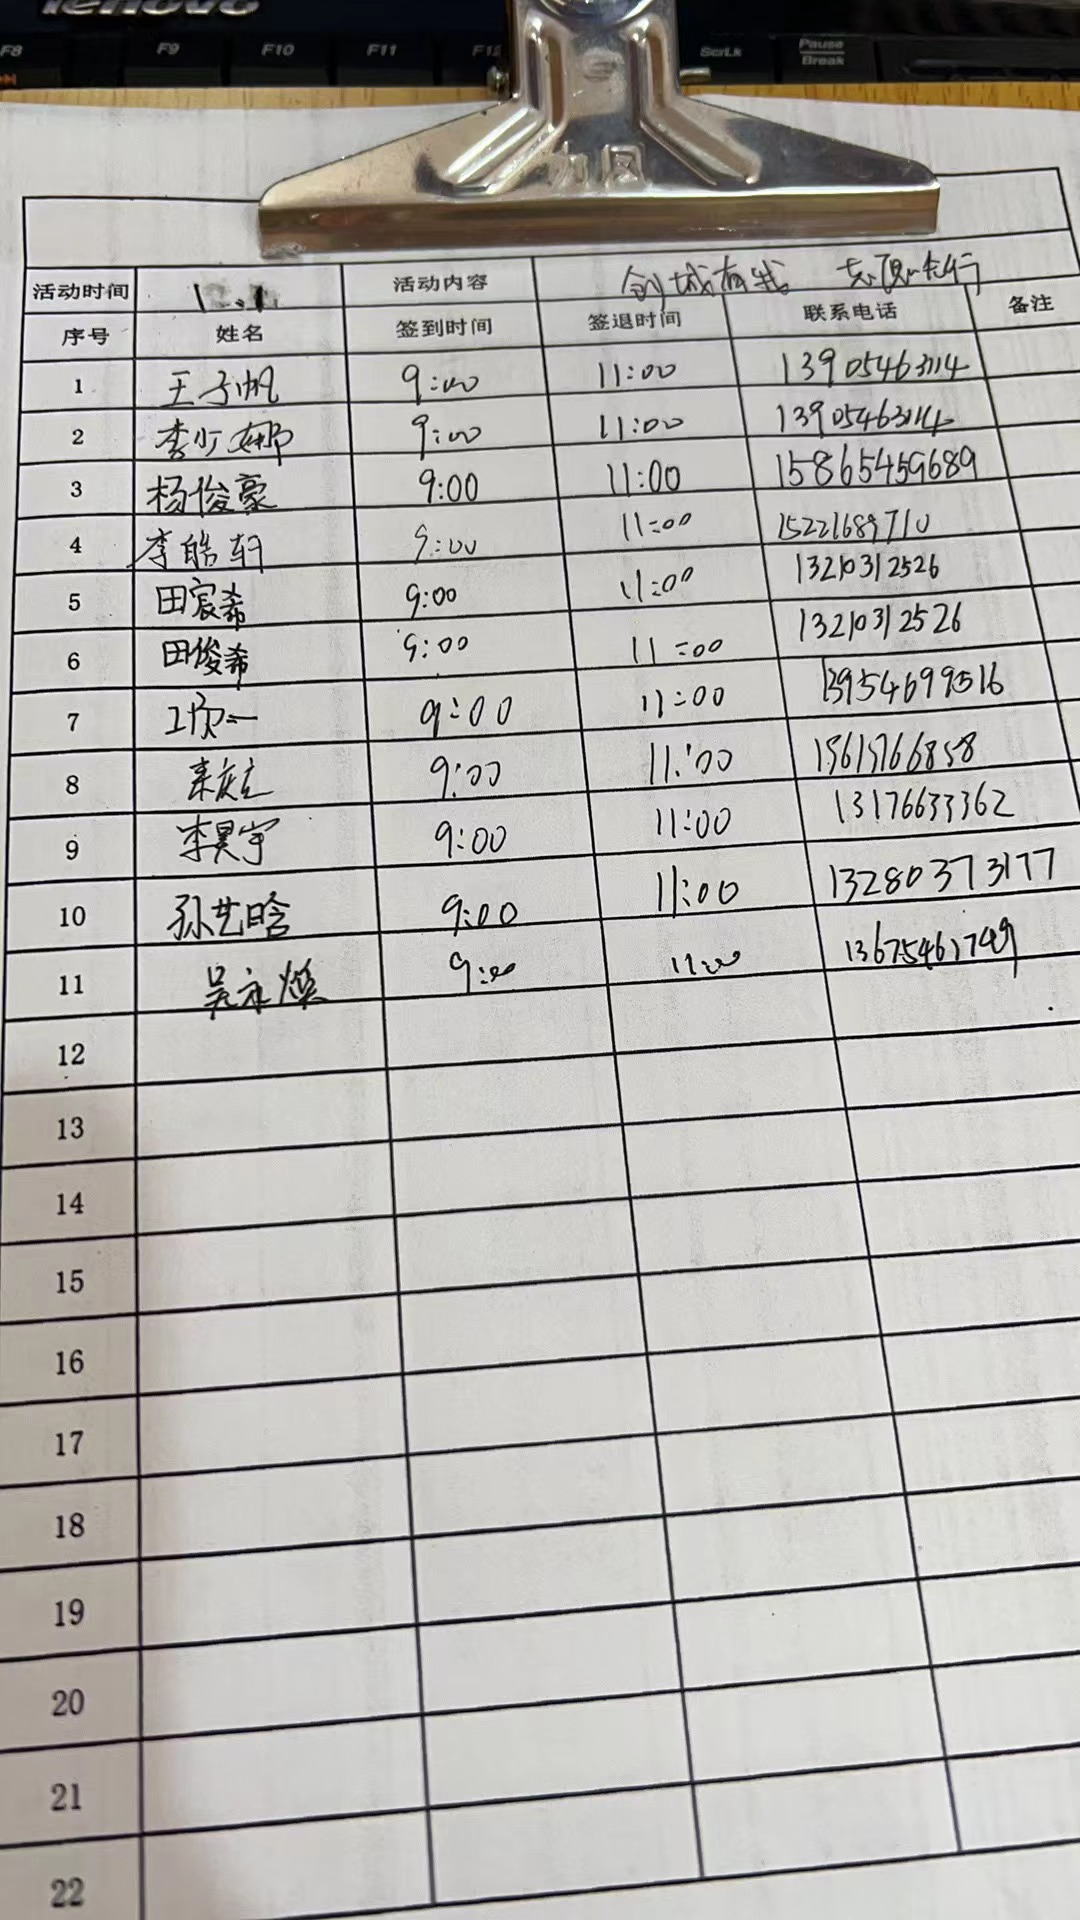 lenovo
F8 F9 F10 F11 F12 ScrLk Pause Break
活动时间 1.1 活动内容 创城有我 志愿先行
序号 姓名 签到时间 签退时间 联系电话 备注
1 王子帆 9:00 11:00 13905463114
2 李少娜 9:00 11:00 13905463114
3 杨俊豪 9:00 11:00 15865459689
4 李皓轩 9:00 11:00 15221689710
5 田宸希 9:00 11:00 13210312526
6 田俊希 9:00 11:00 13210312526
7 9:00 11:00 13954699516
8 9:00 11:00 15615766858
9 李昊宇 9:00 11:00 13176633362
10 孙艺晗 9:00 11:00 13280373177
11 吴永焕 9:00 11:00 13675461749
12
13
14
15
16
17
18
19
20
21
22